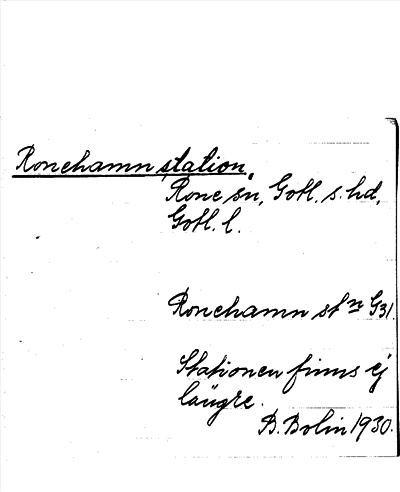 Ronehamn station.
Rone sn, Gotl. s. hd,
Gotl. l.
Ronehamn stn G31.
Stationen finns ej
längre.
B. Bolin 1930.